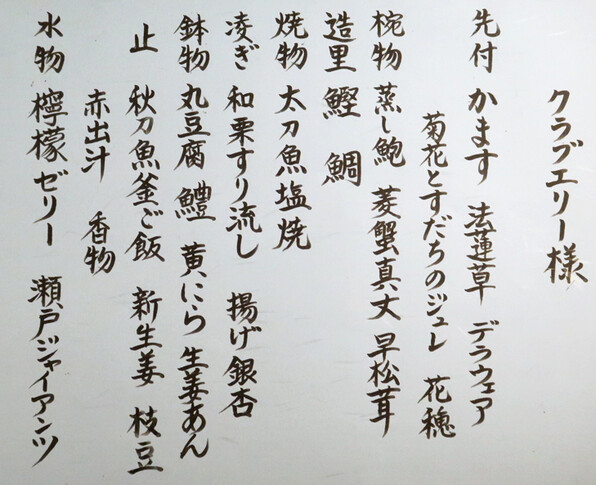 クラブエリー様
先付 かます 法蓮草 デラウェア
菊花とすだちのジュレ 花穂
椀物 蒸し鮑 菱蟹真丈 早松茸
造里 鰹 鯛
焼物 太刀魚塩焼
凌ぎ 和栗すり流し 揚げ銀杏
鉢物 丸豆腐 鱧 黄にら 生姜あん
止 秋刀魚釜ご飯 新生姜 枝豆
赤出汁 香物
水物 檸檬ゼリー 瀬戸ジャイアンツ